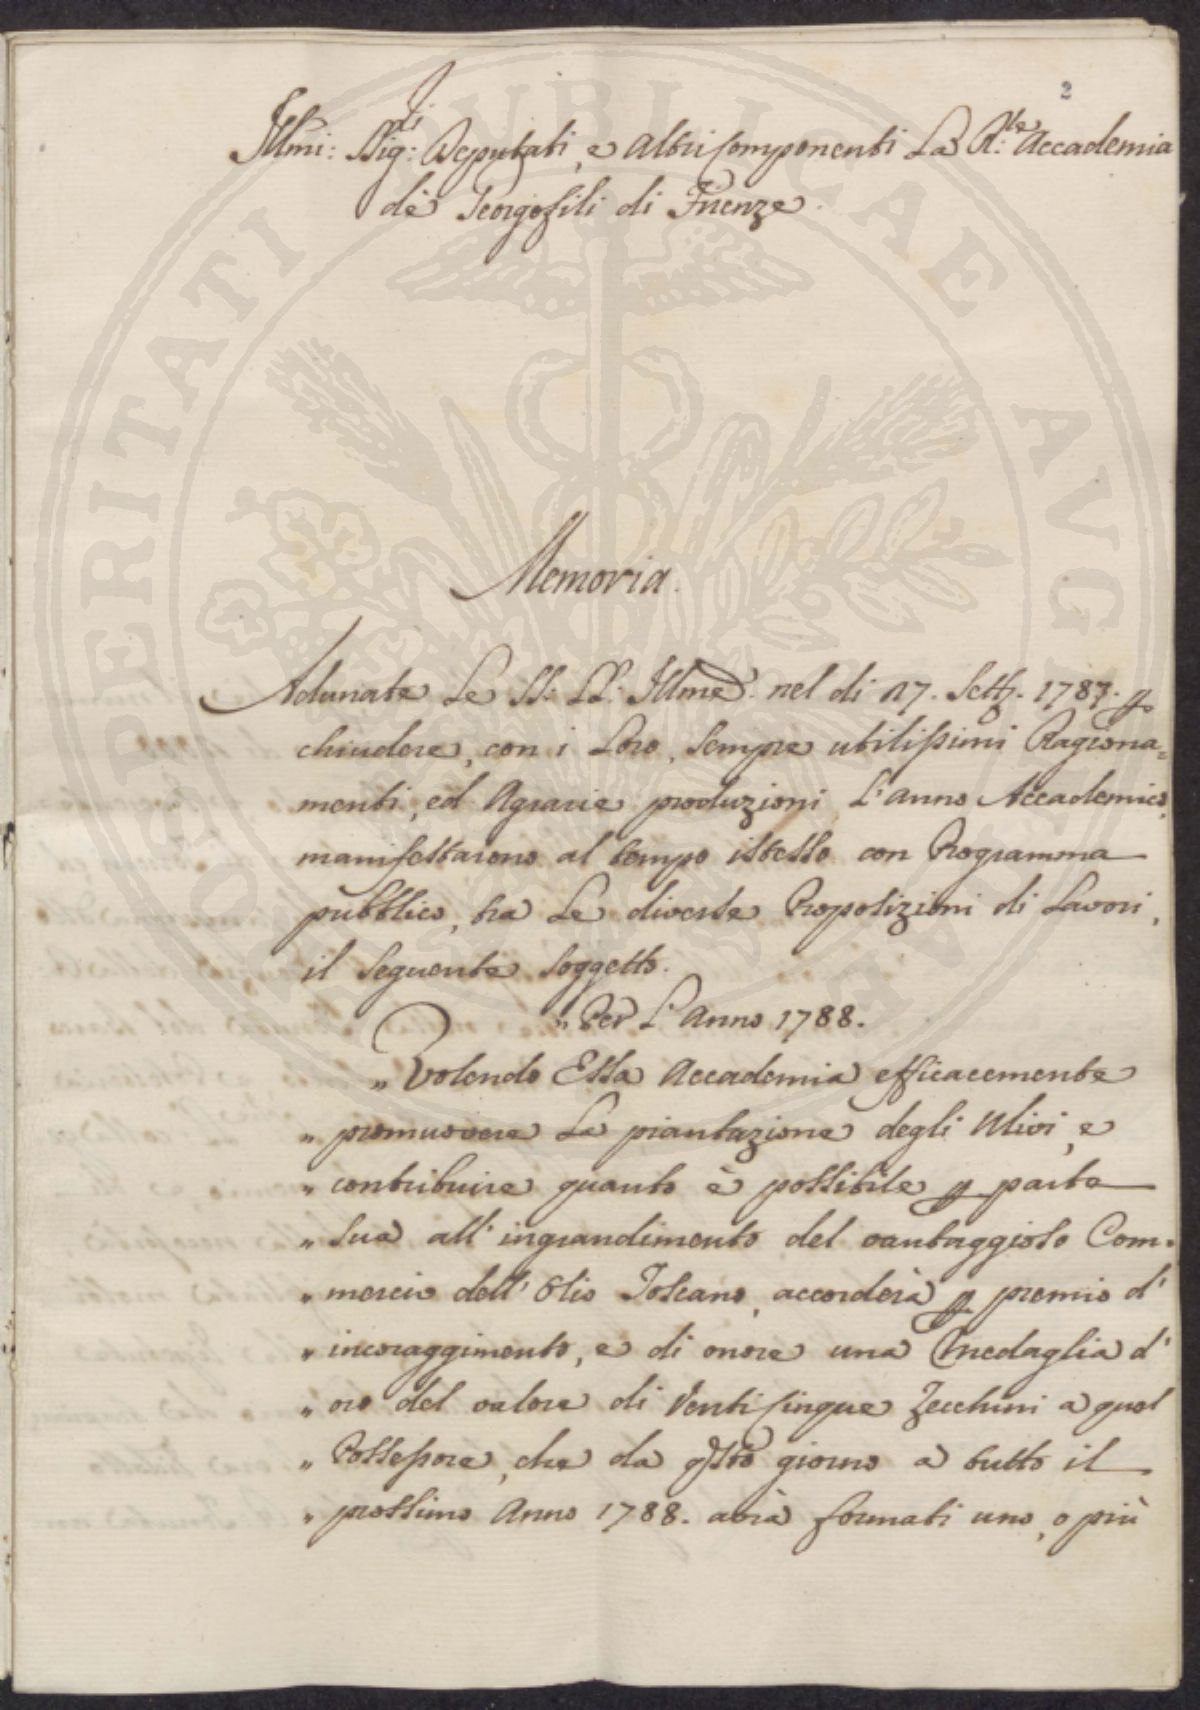 2
Illmi: Sig:ri Deputati, e altri componenti La R:le Accademia
de' Georgofili di Firenze.
Memoria.
Adunate Le SS: LL: Illme. nel di 17. Sett. 1787. p
chiudere, con i Loro, sempre utilissimi Ragiona=
menti, ed Agrarie produzioni, L'anno Accademico,
manifestarono al tempo istesso con Programma
pubblico, tra Le diverse Proposizioni di Lavori,
il seguente soggetto.
„ Per L'Anno 1788.
„ Volendo Essa Accademia efficacemente
„ promuovere La piantazione degli Ulivi, e
„ contribuire quanto è possibile p parte
„ sua all'ingrandimento del vantaggioso Com=
„ mercio dell'Olio Toscano, accorderà p premio d'
„ incoraggimento, e di onore una Medaglia d'
„ oro del valore di Venticinque Zecchini a quel
„ Possessore, che da qsto giorno a tutto il
„ prossimo Anno 1788. avrà formati uno, o più
PROSPERITATI PUBLICAE AUGENDAE